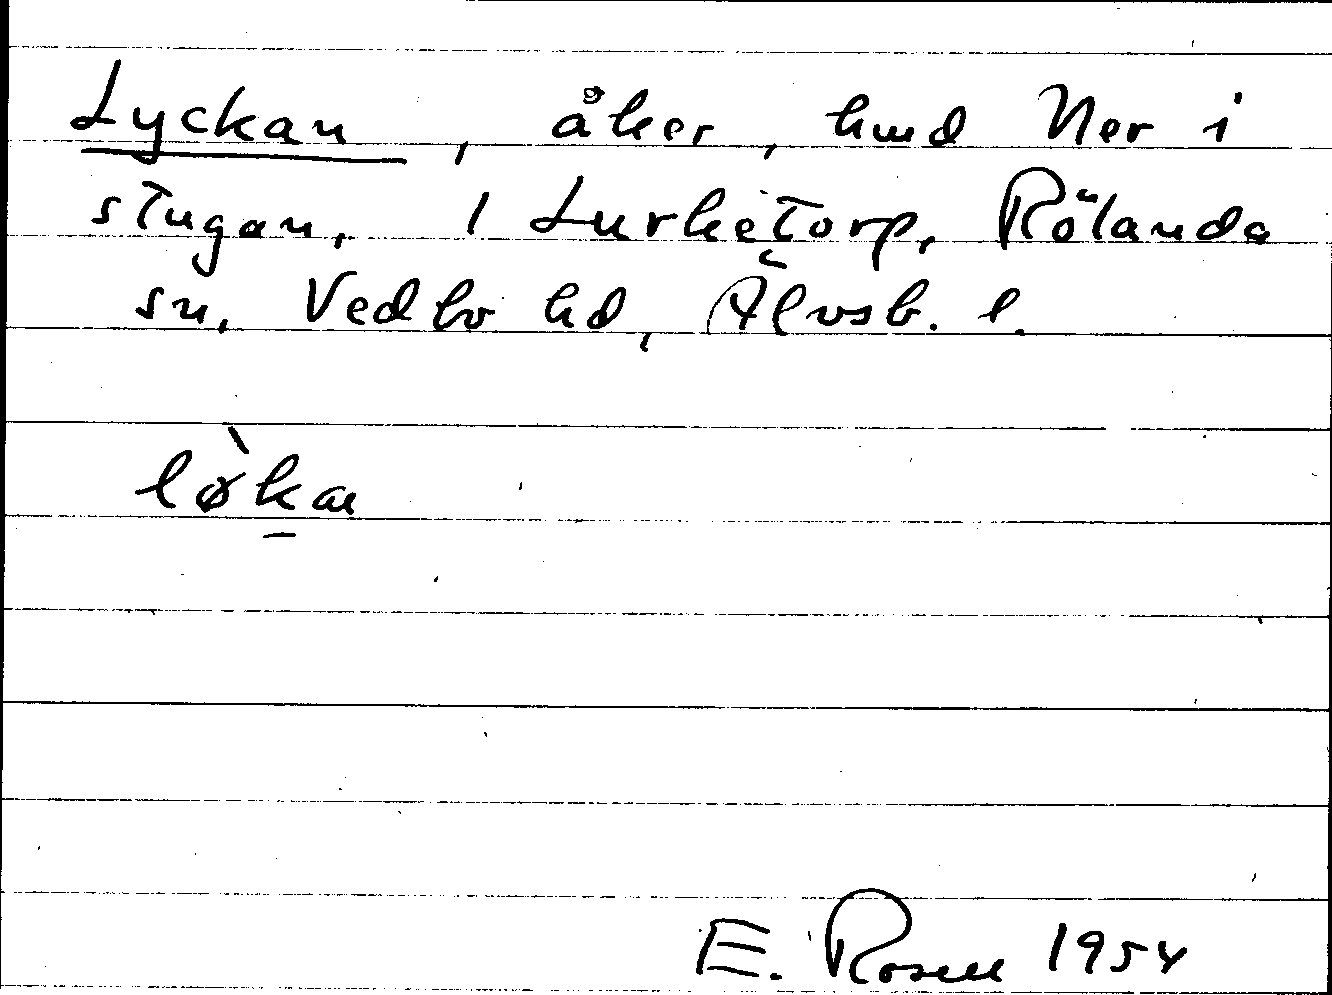 Lyckan, åker, hmd Ner i
stugan, 1 Lurketorp, Rölanda
sn, Vedbo hd, Älvsb. l.
lø̀kan
E. Rosell 1954